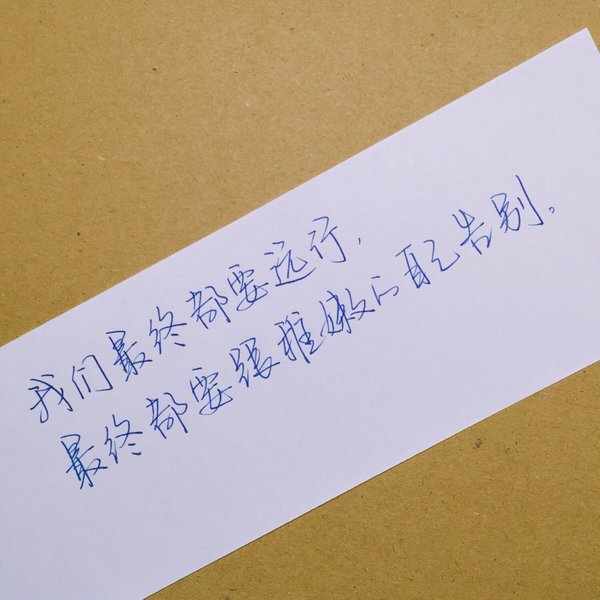 我们最终都要远行,
最终都要跟稚嫩的自己告别。